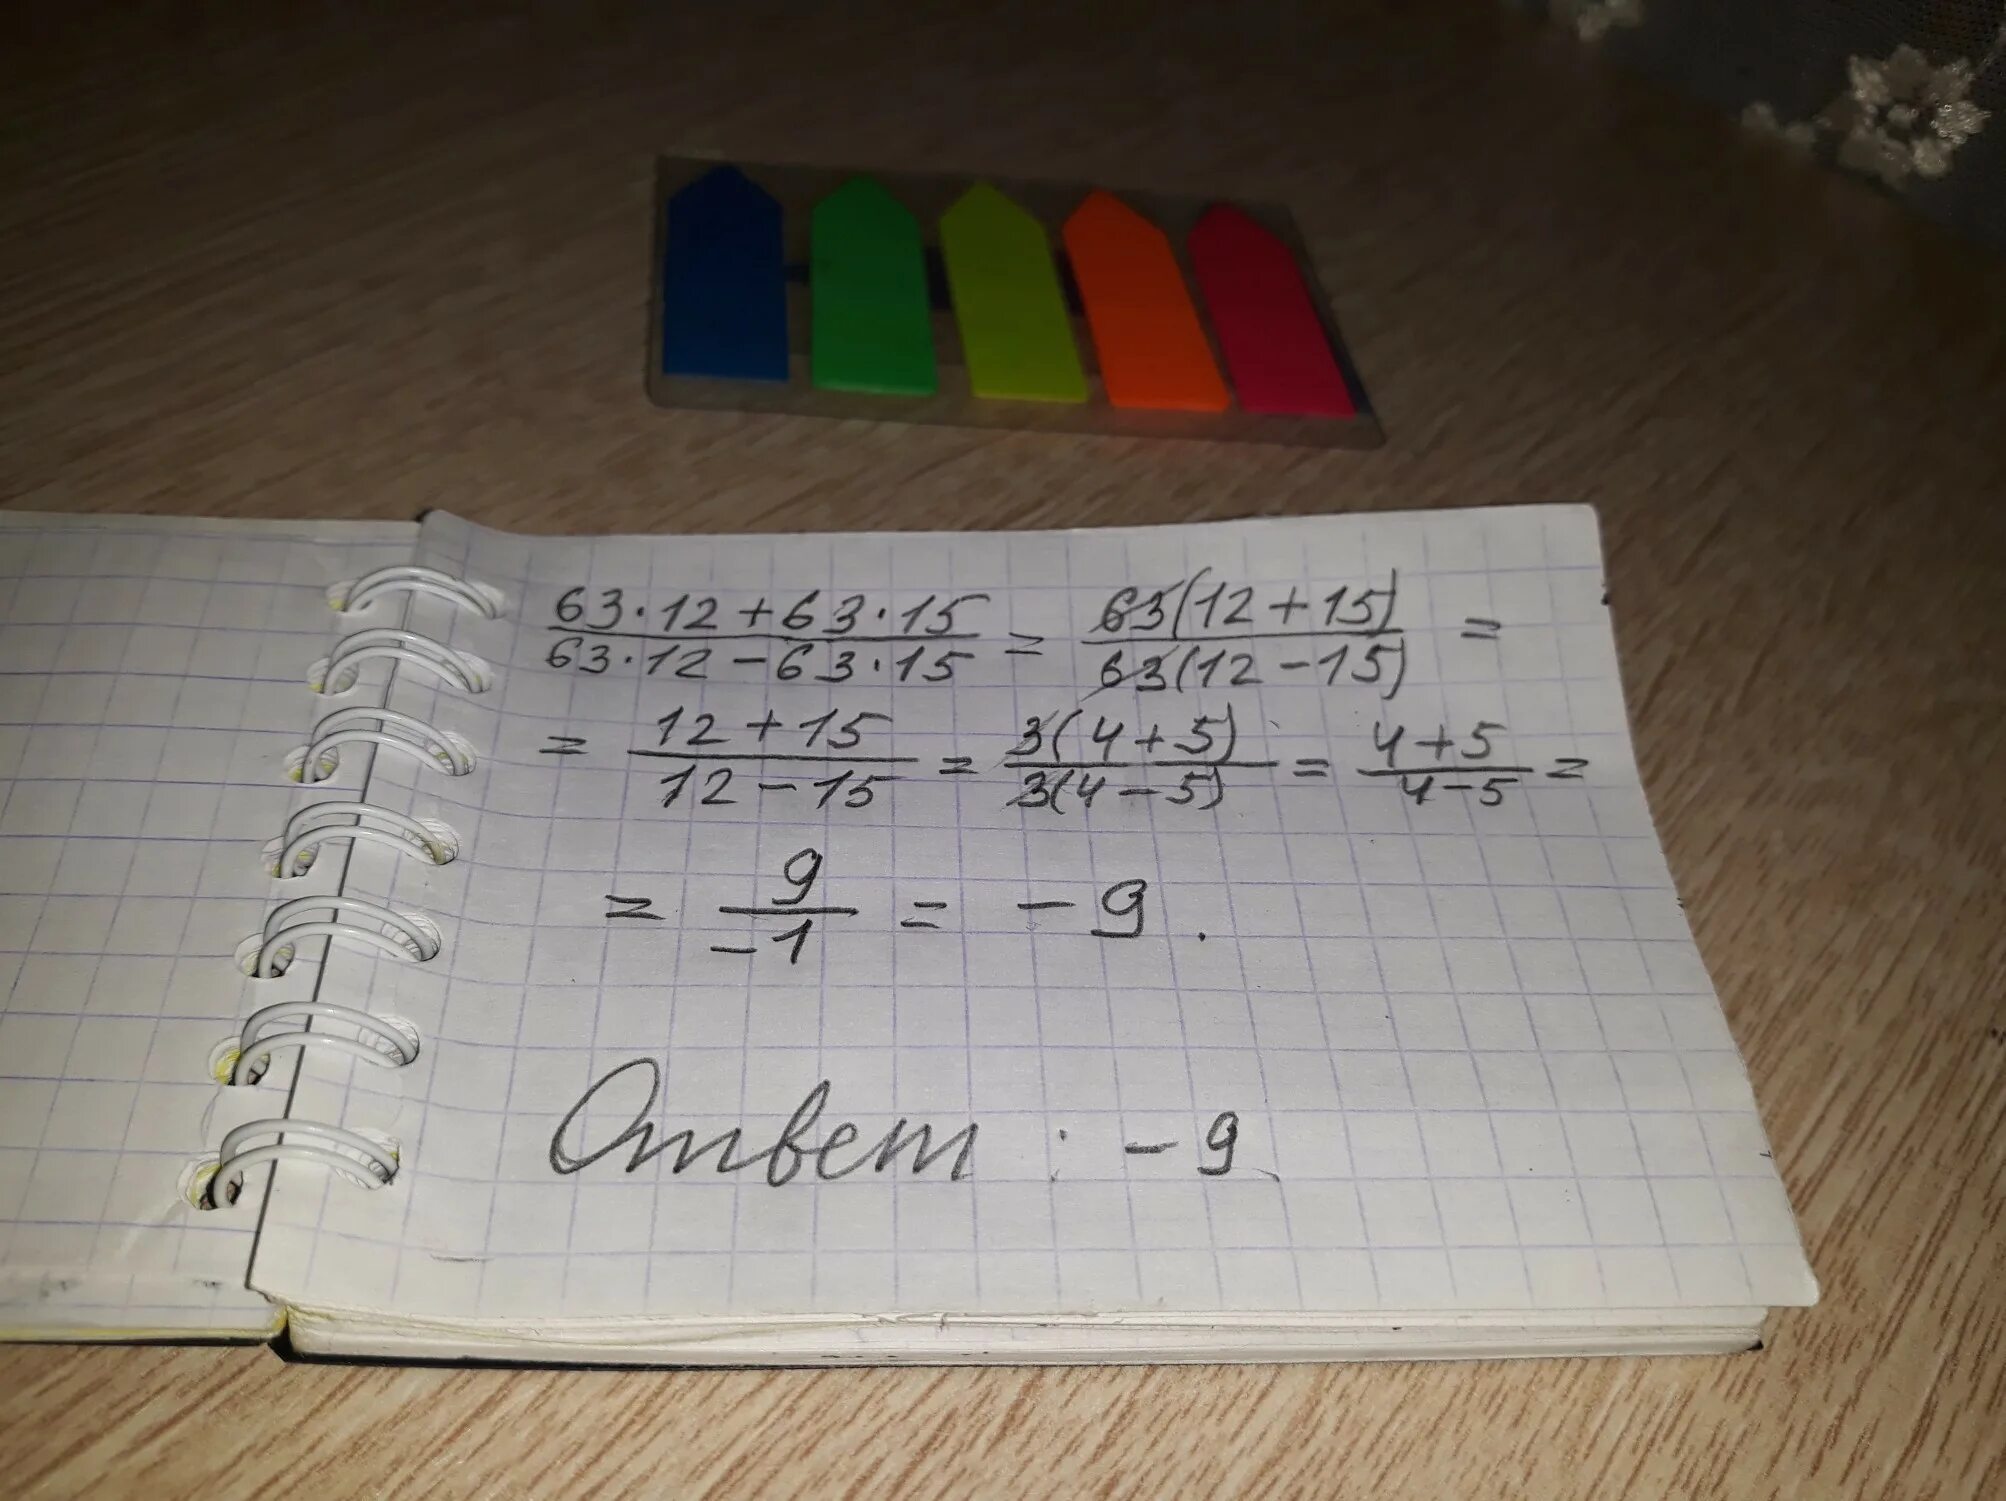 63·12+63·15/63·12−63·15 = 63(12+15)/63(12−15) =
= 12+15/12−15 = 3(4+5)/3(4−5) = 4+5/4−5 =
= 9/−1 = −9.
Ответ: −9.